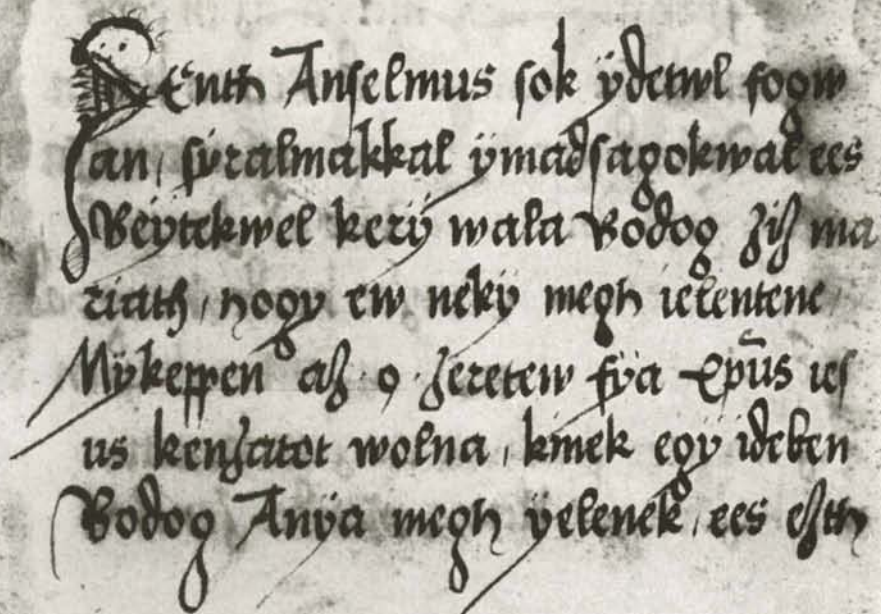 Zenth Anselmus sok ÿdetwl fogw
an, sÿralmakkal ÿmadsagokwal ees
Beÿtekwel kerÿ wala Bodog ziz ma
riath, hogÿ ew nekÿ megh ielentene
Mÿkeppen az ew zeretew fÿa xpūs ies
us kenzatot wolna, kinek egÿ ideben
Bodog Anÿa megh ÿelenek, ees ezth